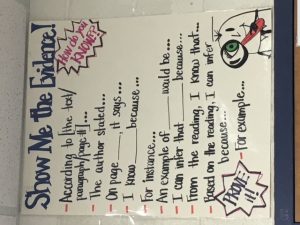 Show Me the Evidence!
How do you KNOW?!?
- According to (the text/
paragraph/page #)...
- The author stated...
- On page ___ it says...
- I know ___ because...
- For instance...
- An example of ___ would be...
- I can infer that ___ because...
- From the reading, I know that...
- Based on the reading, I can infer ___
because...
- For example...
PROVE it!